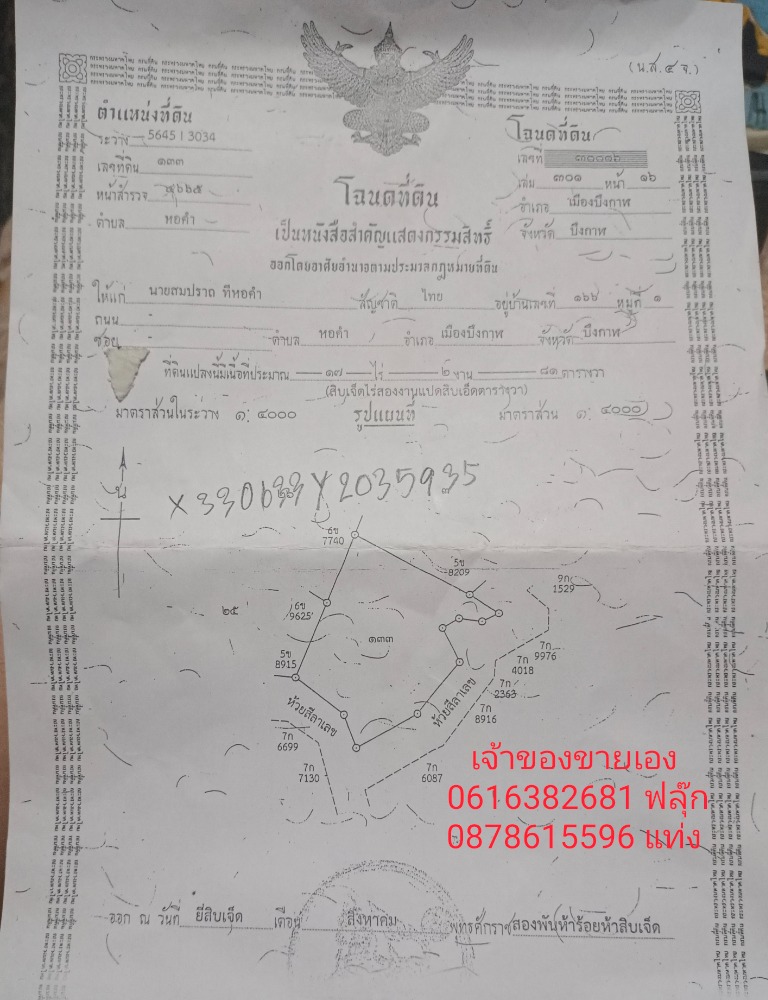 (น.ส.๔ จ.)
ตำแหน่งที่ดิน
ระวาง 5645 I 3034
เลขที่ดิน ๑๓๓
หน้าสำรวจ
ตำบล หอคำ
โฉนดที่ดิน
เลขที่
เล่ม ๓๐๑ หน้า ๑๖
อำเภอ เมืองบึงกาฬ
จังหวัด บึงกาฬ
โฉนดที่ดิน
เป็นหนังสือสำคัญแสดงกรรมสิทธิ์
ออกโดยอาศัยอำนาจตามประมวลกฎหมายที่ดิน
ให้แก่ นายสมปราถ ทีหอคำ สัญชาติ ไทย อยู่บ้านเลขที่ ๑๖๖ หมู่ที่ ๑
ถนน -
ซอย - ตำบล หอคำ อำเภอ เมืองบึงกาฬ จังหวัด บึงกาฬ
ที่ดินแปลงนี้มีเนื้อที่ประมาณ ๑๗ ไร่ ๒ งาน ๘๑ ตารางวา
(สิบเจ็ดไร่สองงานแปดสิบเอ็ดตารางวา)
มาตราส่วนในระวาง ๑: ๔๐๐๐ รูปแผนที่ มาตราส่วน ๑: ๔๐๐๐
น
Y 2035935
6ข
7740
5ข
8209
9ก
1529
6ข
9625
๒๕
๑๓๓
7ก
9976
7ก
4018
5ข
8915
7ก
2363
ห้วยสีลาเลข
ห้วยสีลาเลข
7ก
8916
7ก
6699
7ก
7130
7ก
6087
เจ้าของขายเอง
0616382681 ฟลุ๊ก
0878615596 แท่ง
ออก ณ วันที่ ยี่สิบเจ็ด เดือน สิงหาคม พุทธศักราช สองพันห้าร้อยห้าสิบเจ็ด